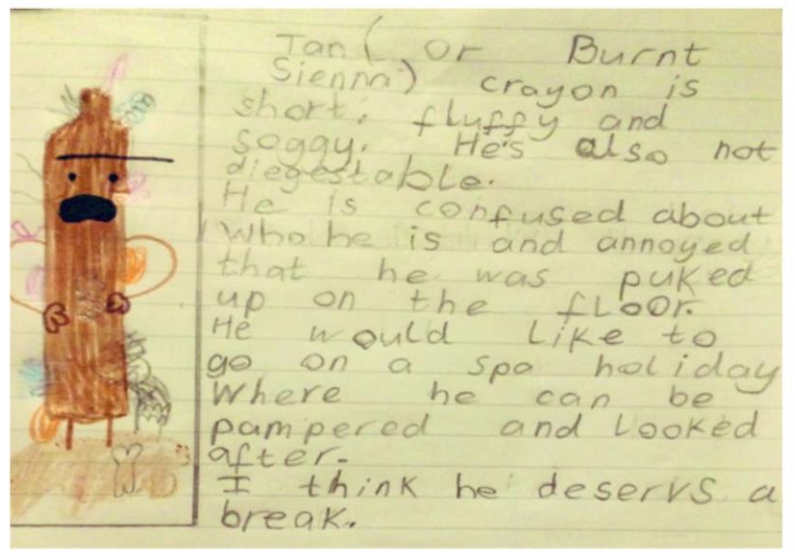 Tan ( or Burnt
Sienna) crayon is
short, fluffy and
soggy. He's also not
diegestable.
He is confused about
who he is and annoyed
that he was puked
up on the floor.
He would like to
go on a spa holiday
where he can be
pampered and looked
after.
I think he deservs a
break.